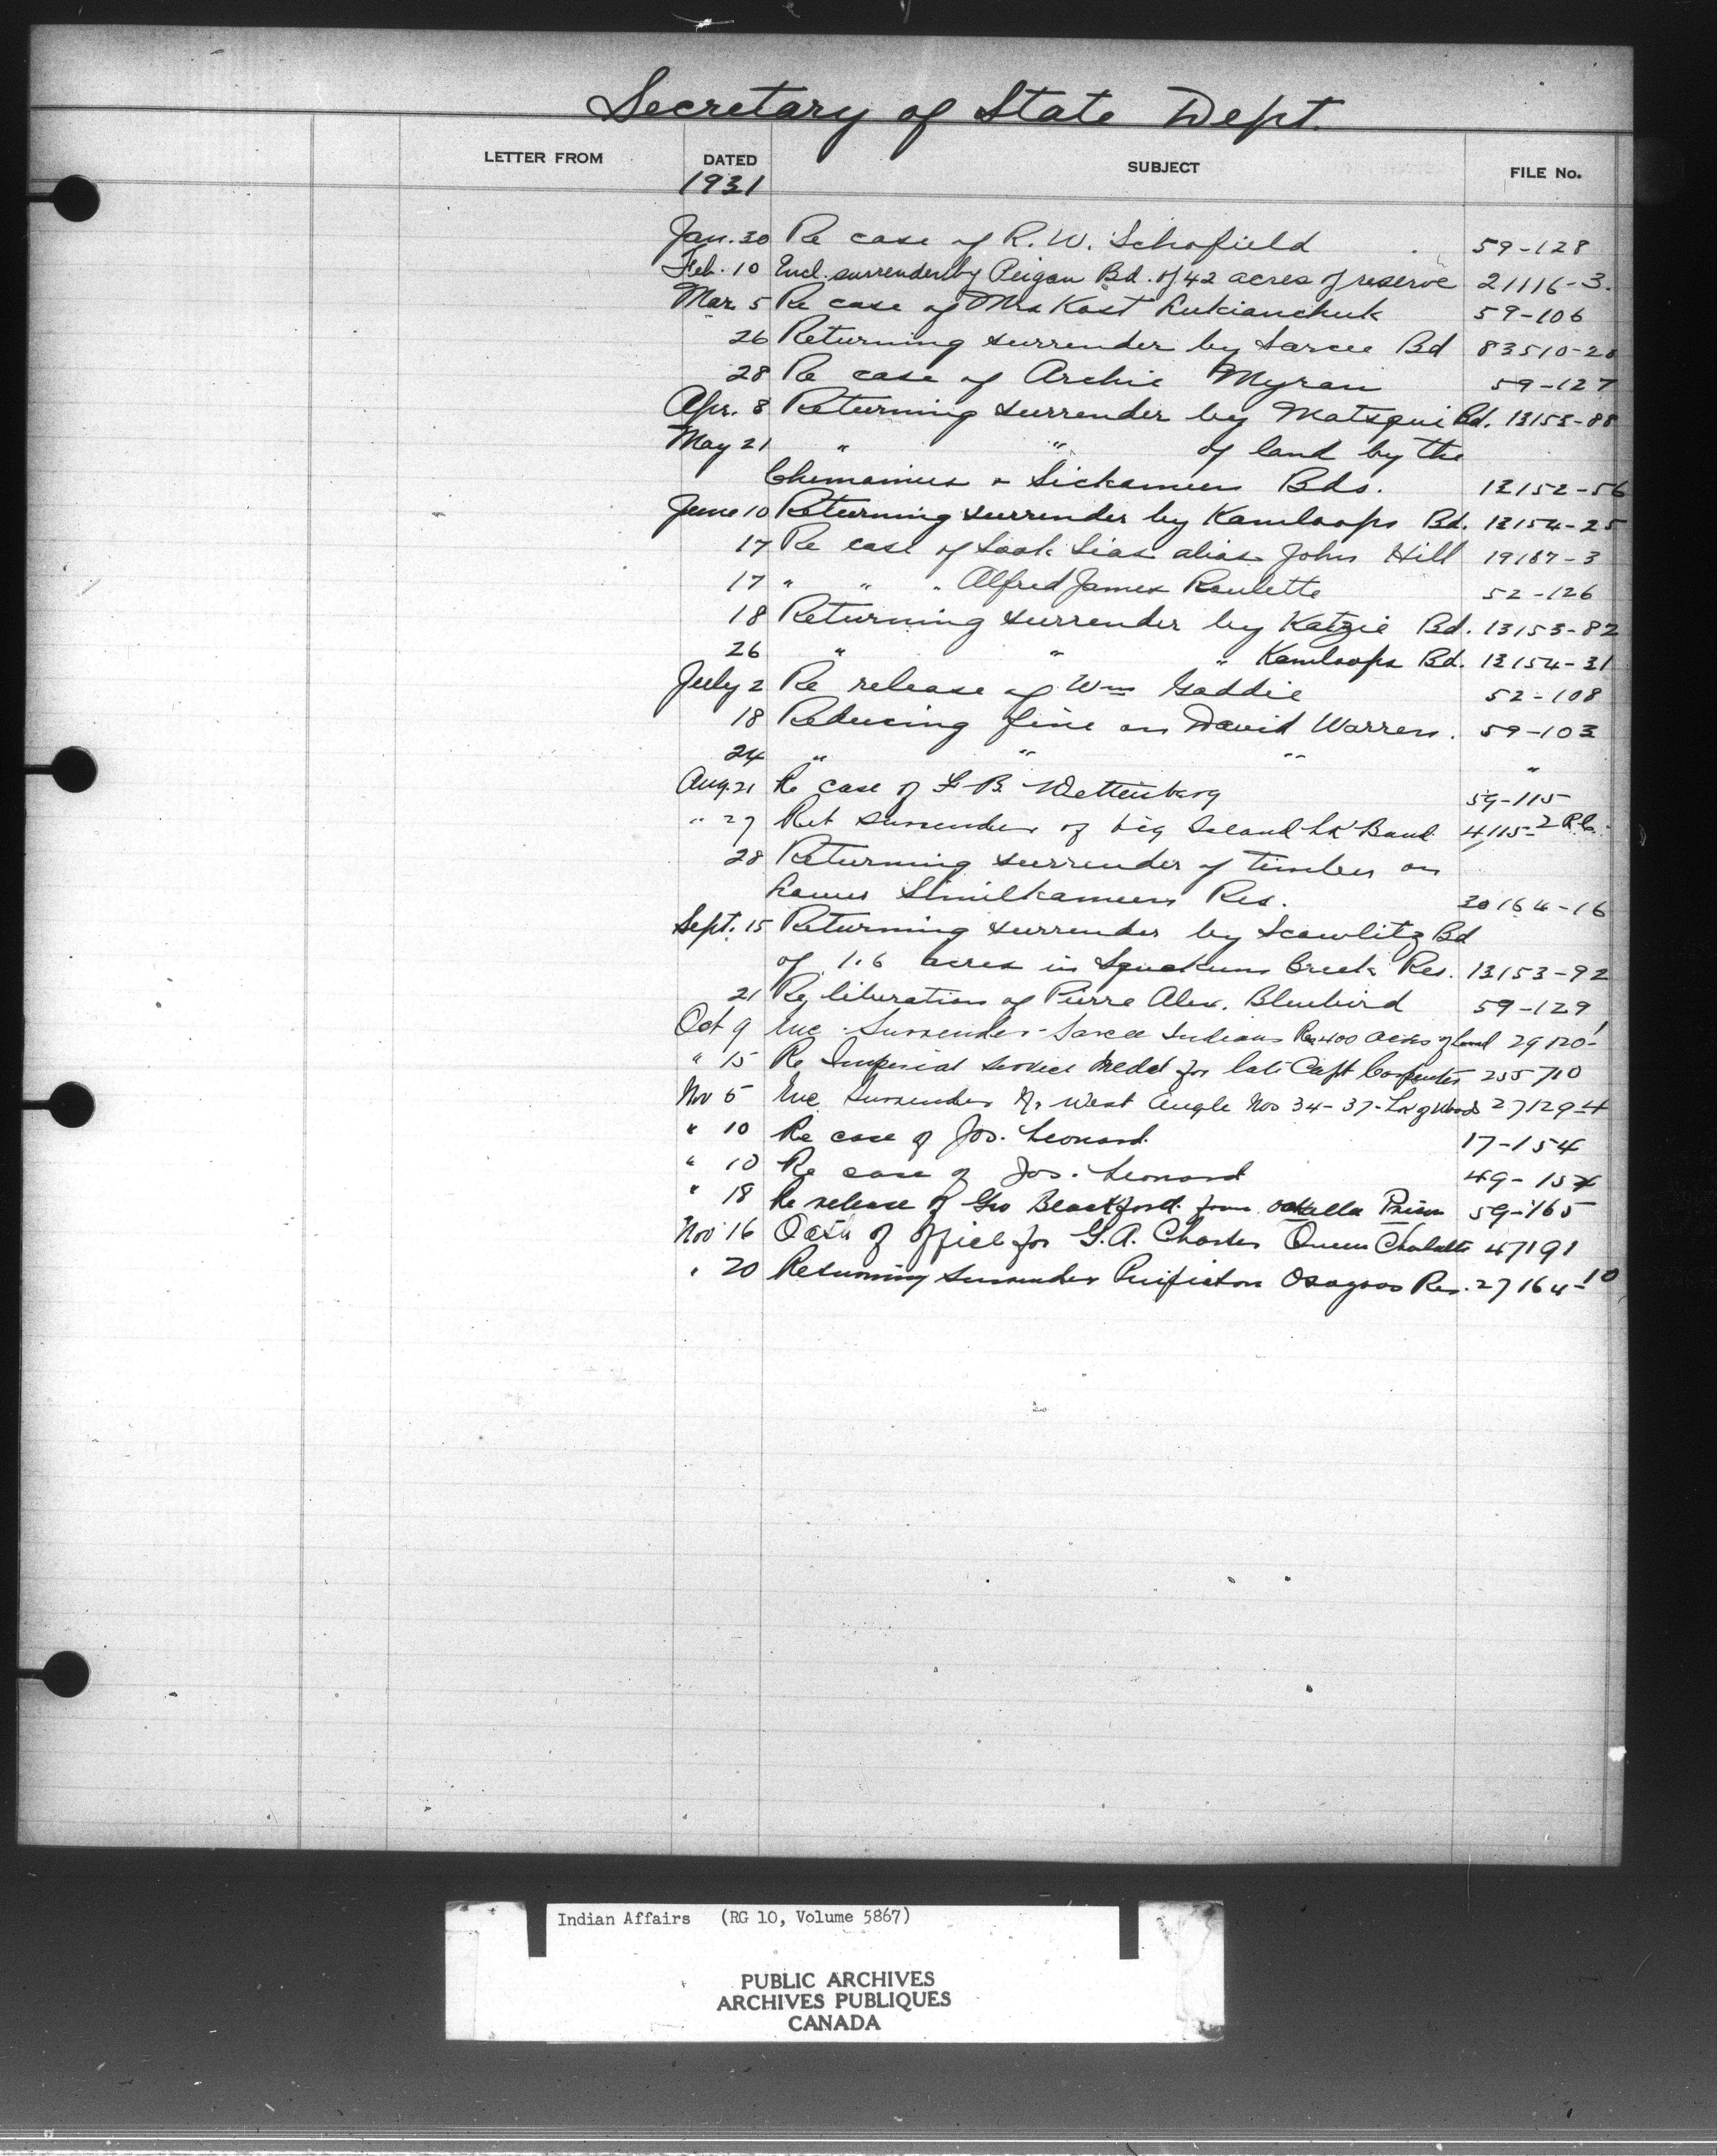 Secretary of State Dept.
LETTER FROM DATED SUBJECT FILE No.
1931
Jan. 30 Re case of R. W. Schofield 59-128
Feb. 10 Encl. surrender by Peigan Bd. of 42 acres of reserve 21116-3.
Mar. 5 Re case of Mrs Kost Lukianchuk 59-106
26 Returning surrender by Sarcee Bd 83510-20
28 Re case of Archie Myran 59-127
Apr. 8 Returning surrender by Matsqui Bd. 13153-88
May 21 " " of land by the
Chemainus & Sickameen Bds. 13152-56
June 10 Returning surrender by Kamloops Bd. 13154-25
17 Re case of Sias alias John Hill 19187-3
17 " " " Alfred James Roulette 52-126
18 Returning surrender by Katzie Bd. 13153-82
26 " " " Kamloops Bd. 13154-31
July 2 Re release of Wm Gaddie 52-108
18 Reducing fine on David Warren. 59-103
24 " " " "
Aug. 21 Re case of F B Wettenberg 59-115
" 27 Ret surrender of big Island Lk Band 4115-2
28 Returning surrender of timber on
Lower Similkameen Res. 30164-16
Sept. 15 Returning surrender by Scowlitz Bd
of 1.6 acres in Squakum Creek Res. 13153-92
21 Re liberation of Pierre Alex. Bluebird 59-129
Oct 9 Enc. Surrender - Sarcee Indians Re 400 acres of land 29120-1
" 15 Re Imperial Service Medal for late Capt Carpenter 255710
Nov 5 Enc Surrender N. West Angle Nos 34-37 - Lk of Woods 27129-4
" 10 Re case of Jos. Leonard. 17-154
" 10 Re case of Jos. Leonard 49-154
" 18 Re release of Geo Blackford from Oakalla Prison 59-165
Nov 16 Oath of Office for G.A. Queen Charlotte 47191
" 20 Returning Surrender Penticton Osoyoos Res. 27164-10
Indian Affairs (RG 10, Volume 5867)
PUBLIC ARCHIVES
ARCHIVES PUBLIQUES
CANADA